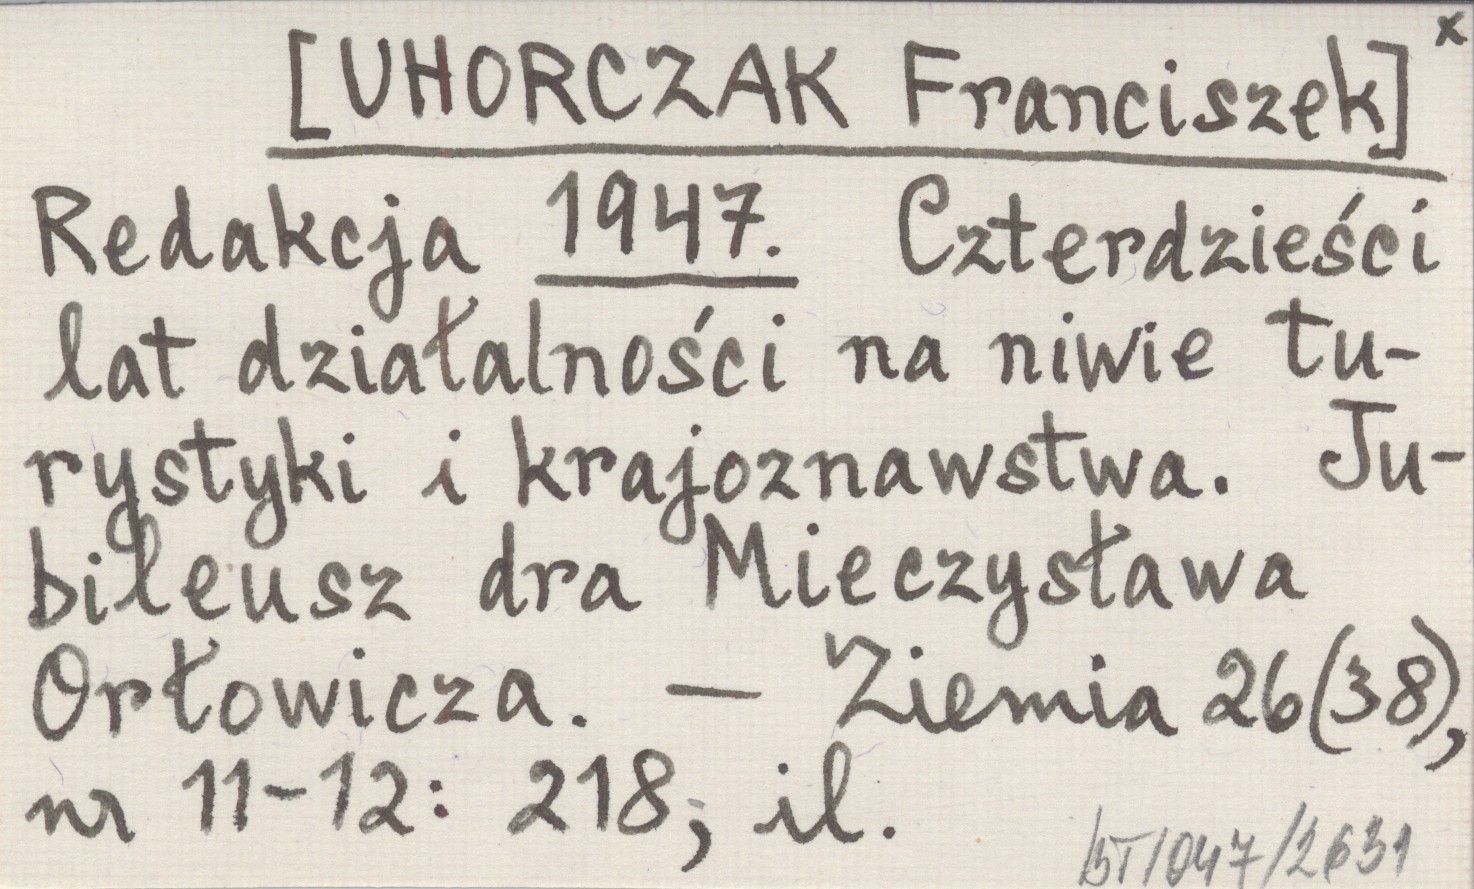 [UHORCZAK Franciszek] x
Redakcja 1947. Czterdzieści
lat działalności na niwie tu-
rystyki i krajoznawstwa. Ju-
bileusz dra Mieczysława
Orłowicza. — Ziemia 26(38),
nr 11-12: 218; il.
BT/047/2631